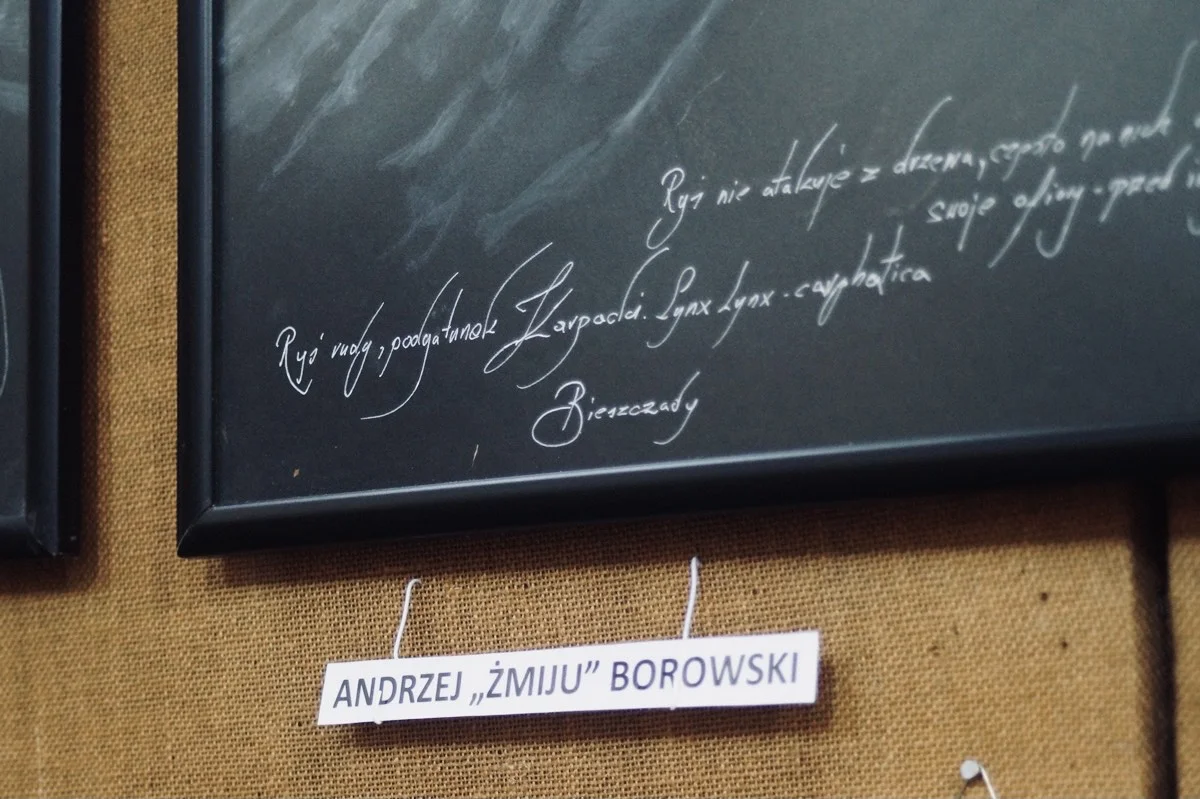 Ryś nie atakuje z drzewa, często na nich
swoje ofiary - przed
Ryś rudy, podgatunek Karpacki. Lynx Lynx - carphatica
Bieszczady
ANDRZEJ „ŻMIJU” BOROWSKI